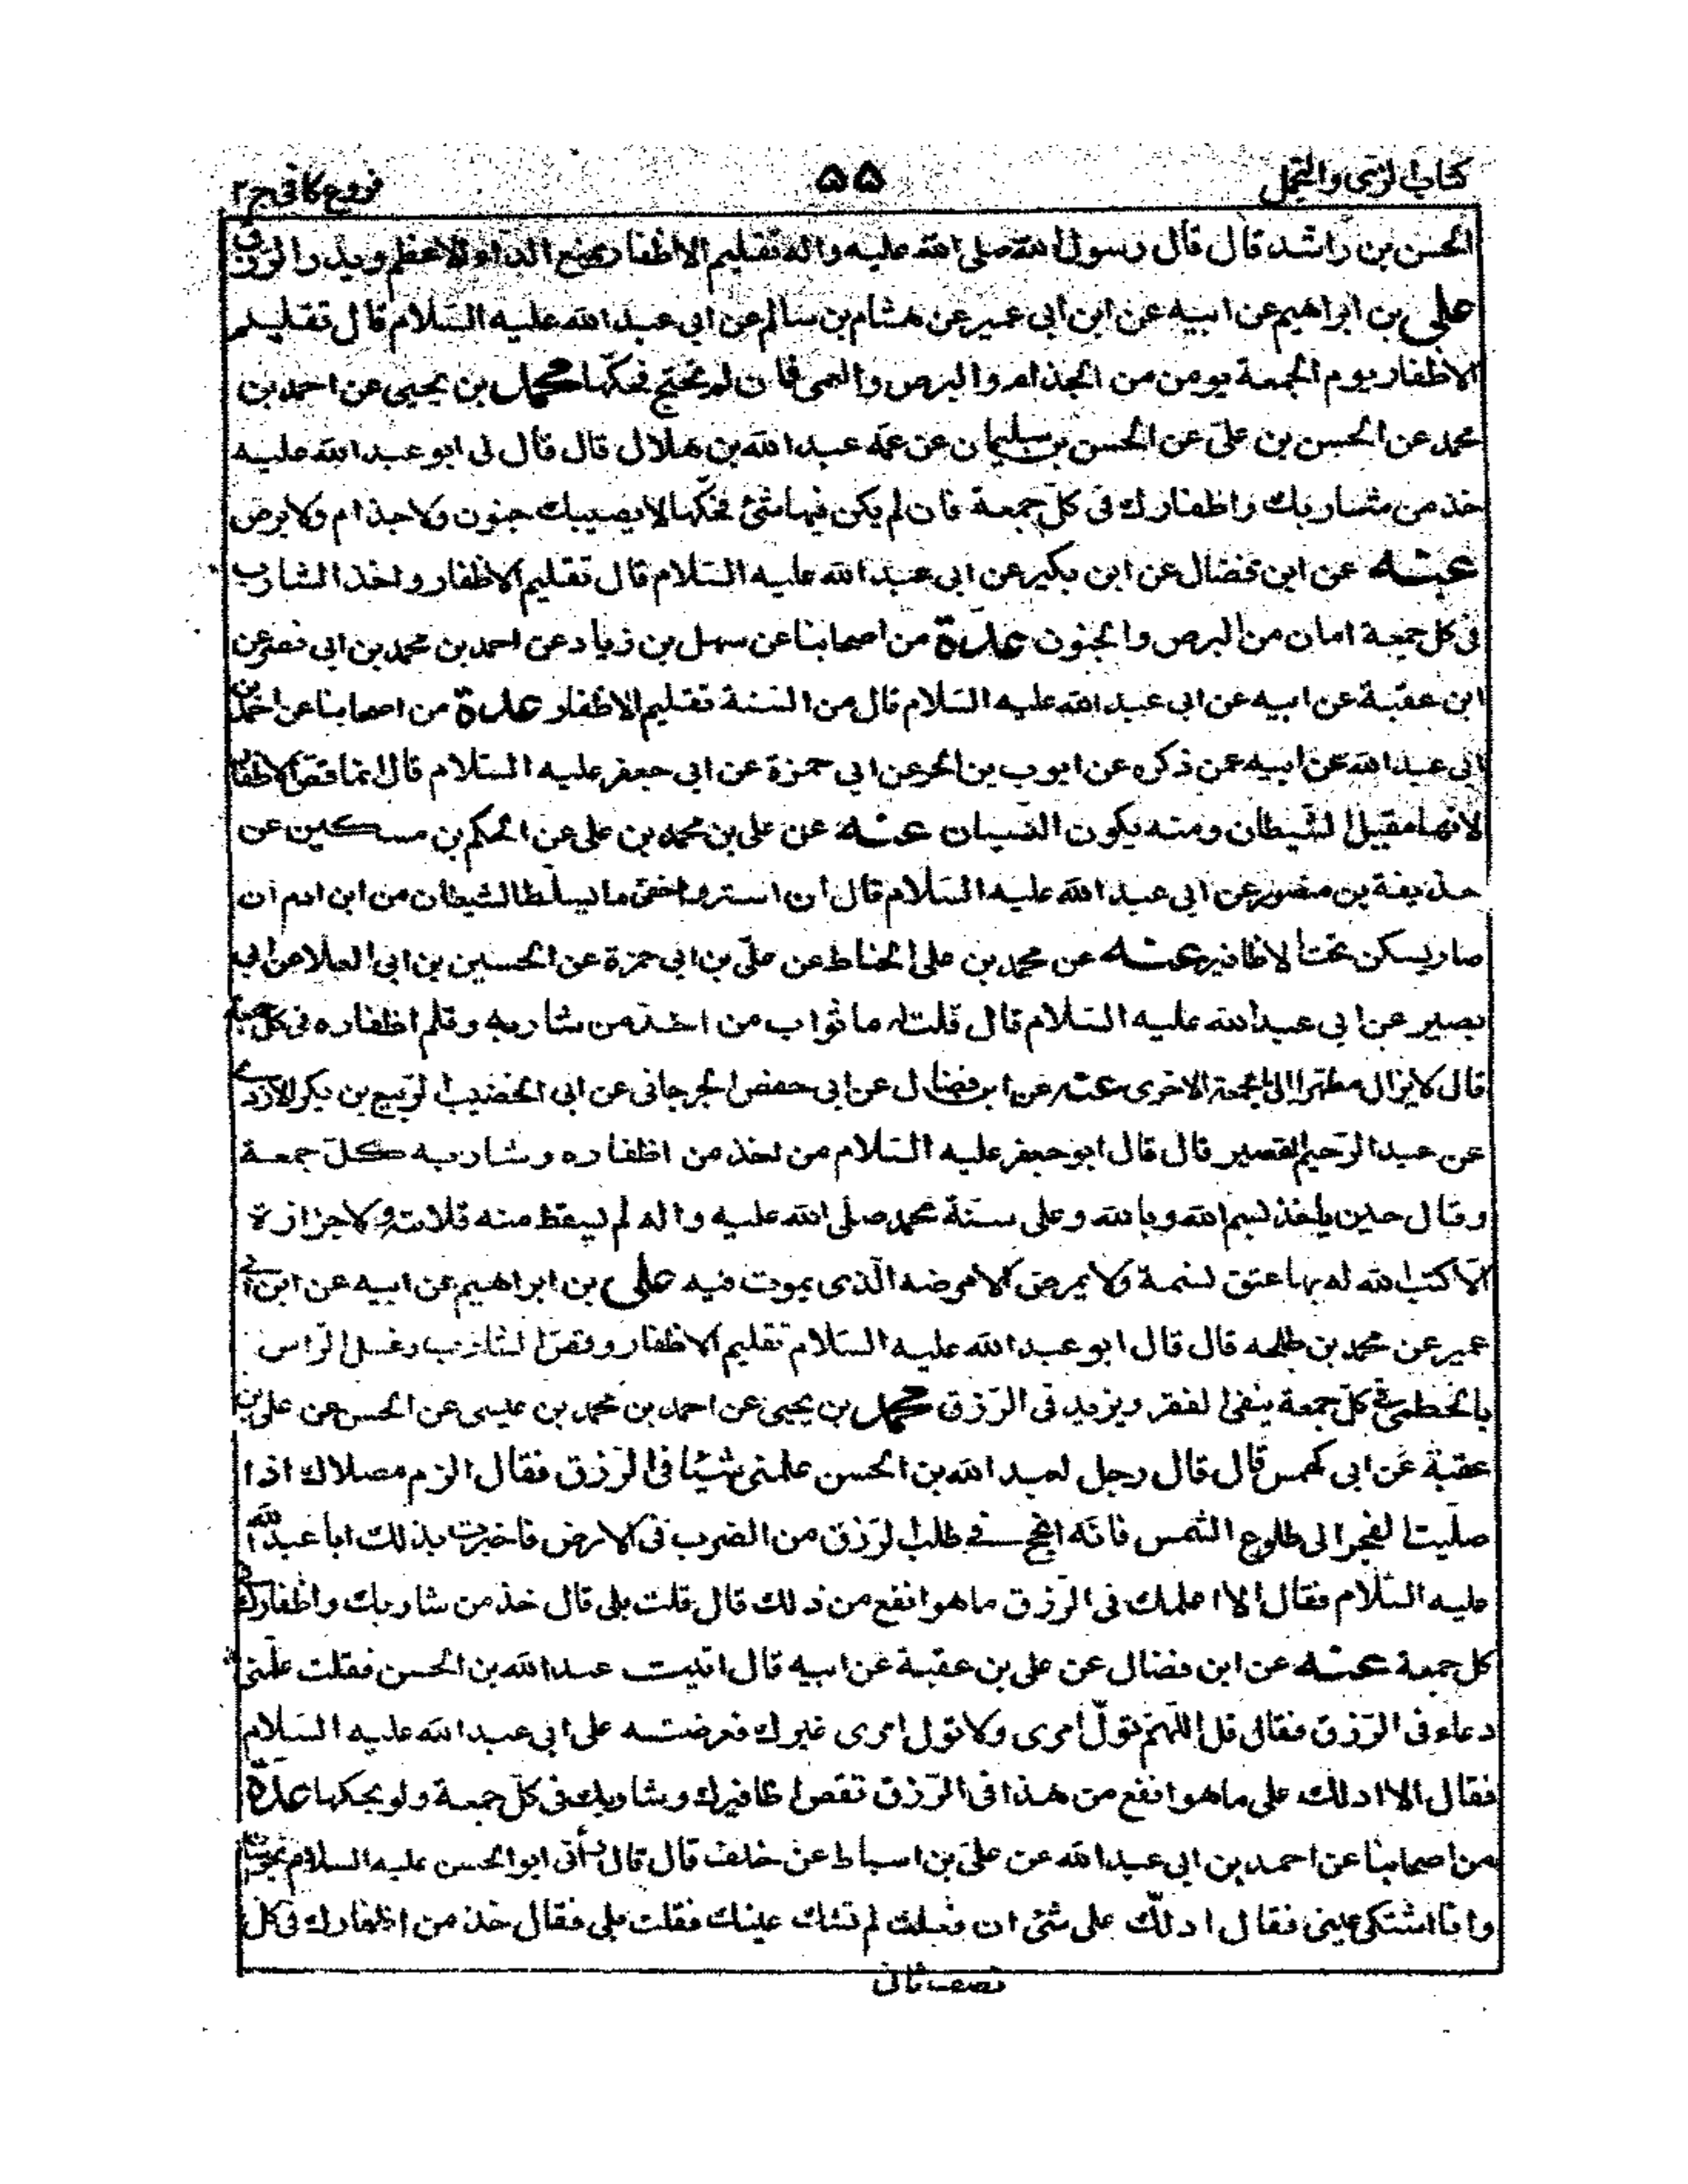 كتاب الزى والتجمل
۵۵
فروع كافى ج۲
الحسن بن راشد قال قال رسول الله صلى الله عليه واله تقليم الاظفار يمنع الداء الاعظم ويدر الرزق
على بن ابراهيم عن ابيه عن ابن ابى عمير عن هشام بن سالم عن ابى عبد الله عليه السلام قال تقليم
الاظفار يوم الجمعة يومن من الجذام والبرص والعمى فان لم تحتج فحكّها محمد بن يحيى عن احمد بن
محمد عن الحسن بن على عن الحسن بن سليمان عن عمّه عبد الله بن هلال قال قال لى ابو عبد الله عليه
خذ من مشاربك واظفارك فى كلّ جمعة فان لم يكن فيها شئ فحكّها لا يصيبك جنون ولا جذام ولا برص
عنه عن ابن فضال عن ابن بكير عن ابى عبد الله عليه السّلام قال تقليم الاظفار واخذ الشارب
فى كل جمعة امان من البرص والجنون عدة من اصحابنا عن سهل بن زياد عن احمد بن محمد بن ابى نصر عن
ابن عقبة عن ابيه عن ابى عبد الله عليه السّلام قال من السّنة تقليم الاظفار عدة من اصحابنا عن احمد بن
ابى عبد الله عن ابيه عمن ذكره عن ايوب بن الحر عن ابى حمزة عن ابى جعفر عليه السّلام قال انما قص الاظفار
لانها مقيل الشّيطان ومنه يكون النسيان عنه عن على بن محمد بن على عن الحكم بن مسكين عن
حذيفة بن منصور عن ابى عبد الله عليه السّلام قال ان استر واخفى ما يسلّط الشيطان من ابن ادم ان
صار يسكن تحت الاظافير عنه عن محمد بن على الحناط عن علىّ بن ابى حمزة عن الحسين بن ابى العلا عن ابى
بصير عن ابى عبد الله عليه السّلام قال قلت له ما ثواب من اخذ من شاربه وقلم اظفاره فى كل جمعة
قال لا يزال مطهرا الى الجمعة الاخرى عنه عن ابن فضال عن ابى حفص الجرجانى عن ابى الخضيب الرّبيع بن بكر الازدى
عن عبد الرّحيم القصير قال قال ابو جعفر عليه السّلام من اخذ من اظفاره وشاربه كلّ جمعة
وقال حين ياخذ بسم الله وبالله وعلى سنّة محمد صلّى الله عليه واله لم يسقط منه قلامة ولا جزازة
الّا كتب الله له بها عتق نسمة ولا يمرض الا مرضه الّذى يموت فيه على بن ابراهيم عن ابيه عن ابن ابى
عمير عن محمد بن طلحه قال قال ابو عبد الله عليه السّلام تقليم الاظفار وقصّ الشارب وغسل الرّاس
بالخطمى فى كلّ جمعة ينفى الفقر ويزيد فى الرّزق محمد بن يحيى عن احمد بن محمد بن عيسى عن الحسن عن على بن
عقبة عن ابى كهمس قال قال رجل لعبد الله بن الحسن علمنى شيئا فى الرّزق فقال الزم مصلاك اذا
صلّيت الفجر الى طلوع الشّمس فانّه انجح فى طلب الرّزق من الضرب فى الارض فاخبرت بذلك ابا عبد الله
عليه السّلام فقال الا اعلمك فى الرّزق ما هو انفع من ذلك قال قلت بلى قال خذ من شاربك واظفارك
كل جمعة عنه عن ابن فضال عن على بن عقبة عن ابيه قال اتيت عبد الله بن الحسن فقلت علّمنى
دعاء فى الرّزق فقال قل اللّهمّ تولّ امرى ولا تول امرى غيرك فعرضته على ابى عبد الله عليه السّلام
فقال الا ادلك على ما هو انفع من هذا فى الرّزق تقص اظافيرك وشاربك فى كلّ جمعة ولو بحكها عدّة
من اصحابنا عن احمد بن ابى عبد الله عن علىّ بن اسباط عن خلف قال قال رأنى ابو الحسن عليه السلام
وانا اشتكى عينى فقال ادلّك على شئ ان فعلت لم تشك عينك فقلت بلى فقال خذ من اظفارك فى كل
نصف ثانى